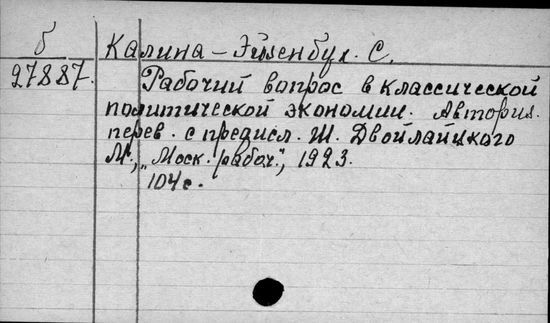 б
27887.
Калина-Эйзенбух. С.
Рабочий вопрос в классической
политической экономии. Авториз.
перев. с предисл. Ш. Двойлайцкого
М., „Моск. рабоч.", 1923.
104с.